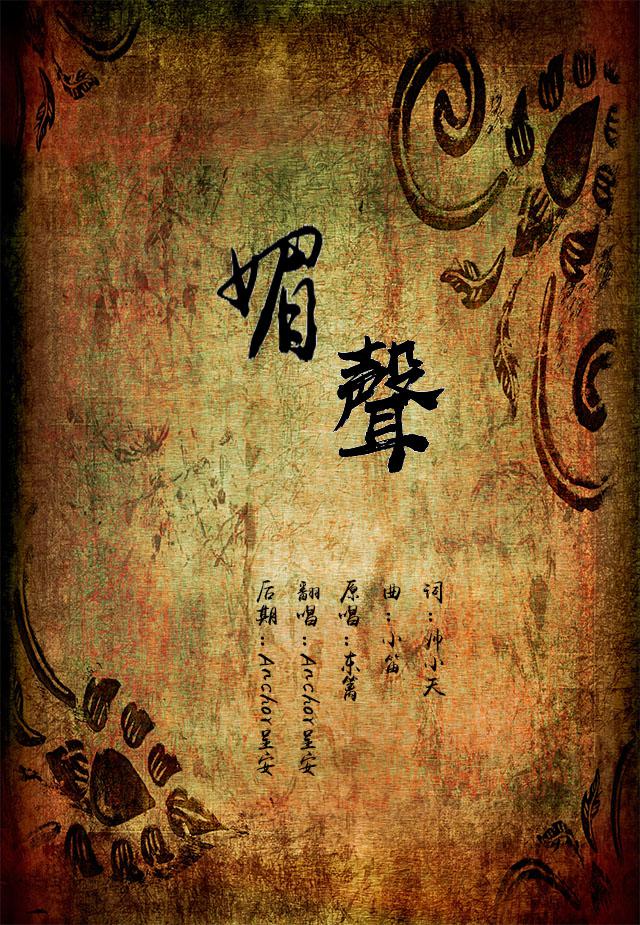 媚
聲
词：帅小天
曲：小笛
原唱：东篱
翻唱：Anchor呈安
后期：Anchor呈安